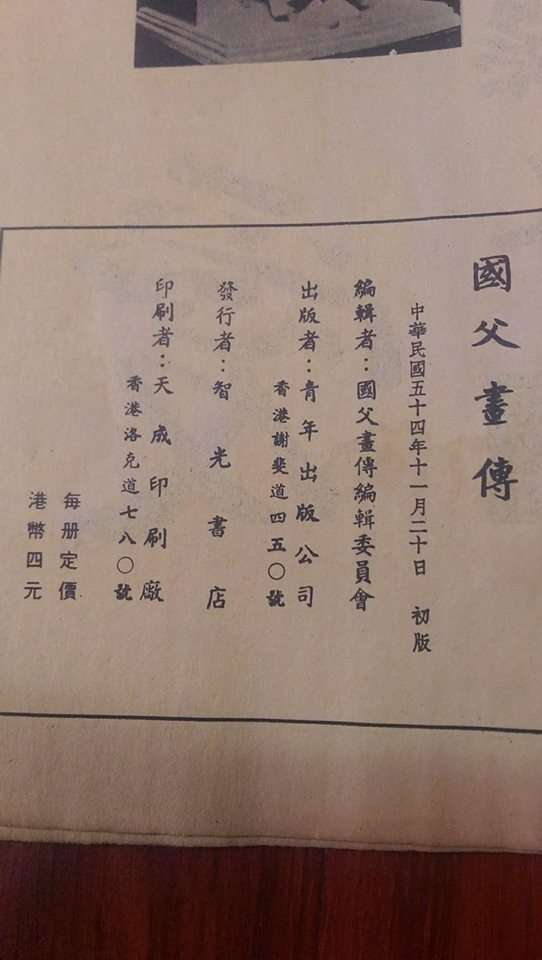 國父畫傳
中華民國五十四年十一月二十日　初版
編輯者：國父畫傳編輯委員會
出版者：青年出版公司
香港謝斐道四五〇號
發行者：智光書店
印刷者：天成印刷廠
香港洛克道七八〇號
每册定價
港幣四元